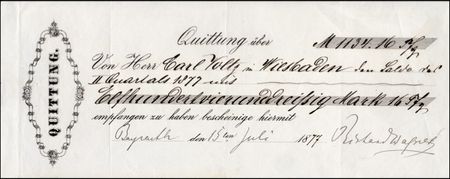 QUITTUNG.
Quittung über M 1134. 16 Pfg
Von Herr Carl Voltz in Wiesbaden den Saldo des
II Quartals 1877 mit
Elfhundertvierunddreißig Mark 16 Pfg
empfangen zu haben bescheinige hiermit
Bayreuth den 15ten Juli 1877 Richard Wagner